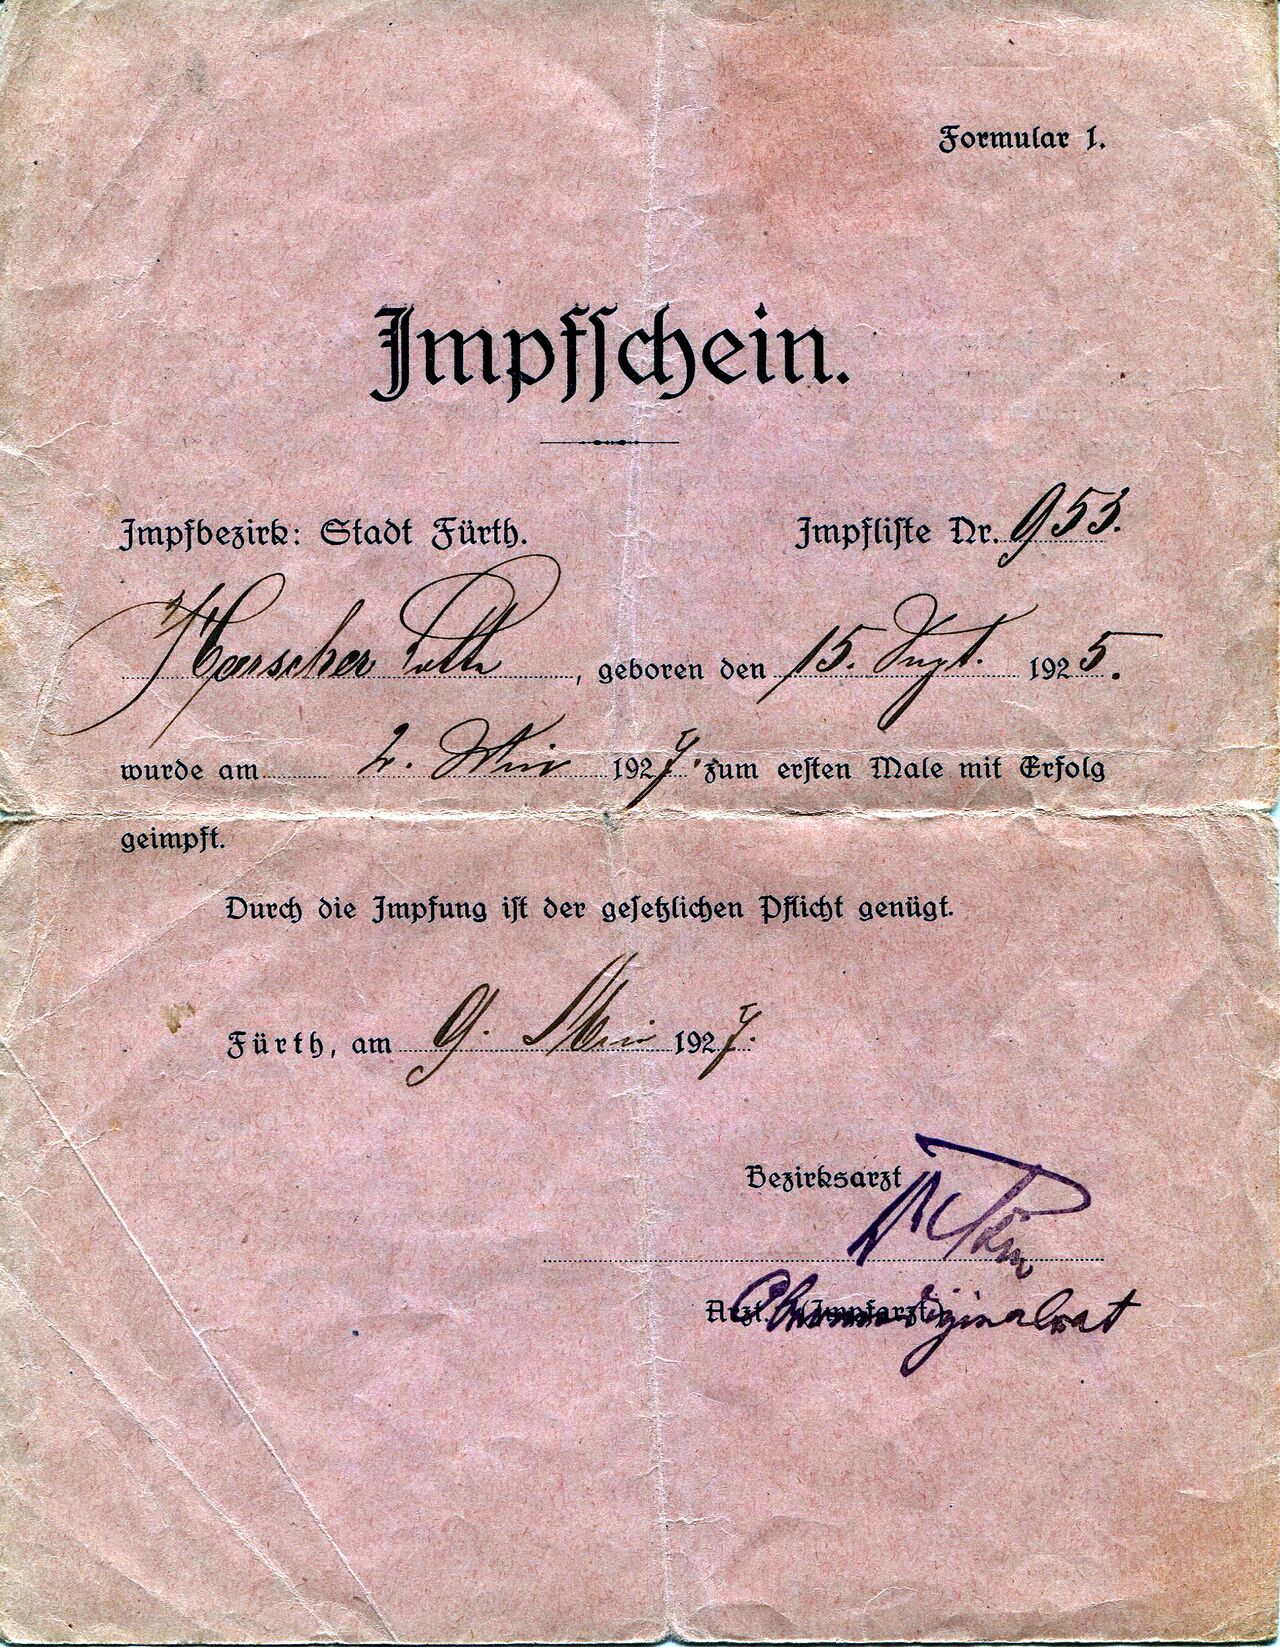 Formular 1.
Impfschein.
Impfbezirk: Stadt Fürth. Impfliste Nr. 953.
, geboren den 15. Sept. 1925.
wurde am 2. Mai 1927. zum ersten Male mit Erfolg
geimpft.
Durch die Impfung ist der gesetzlichen Pflicht genügt.
Fürth, am 9. Mai 1927.
Bezirksarzt
Arzt. (Impfarzt)